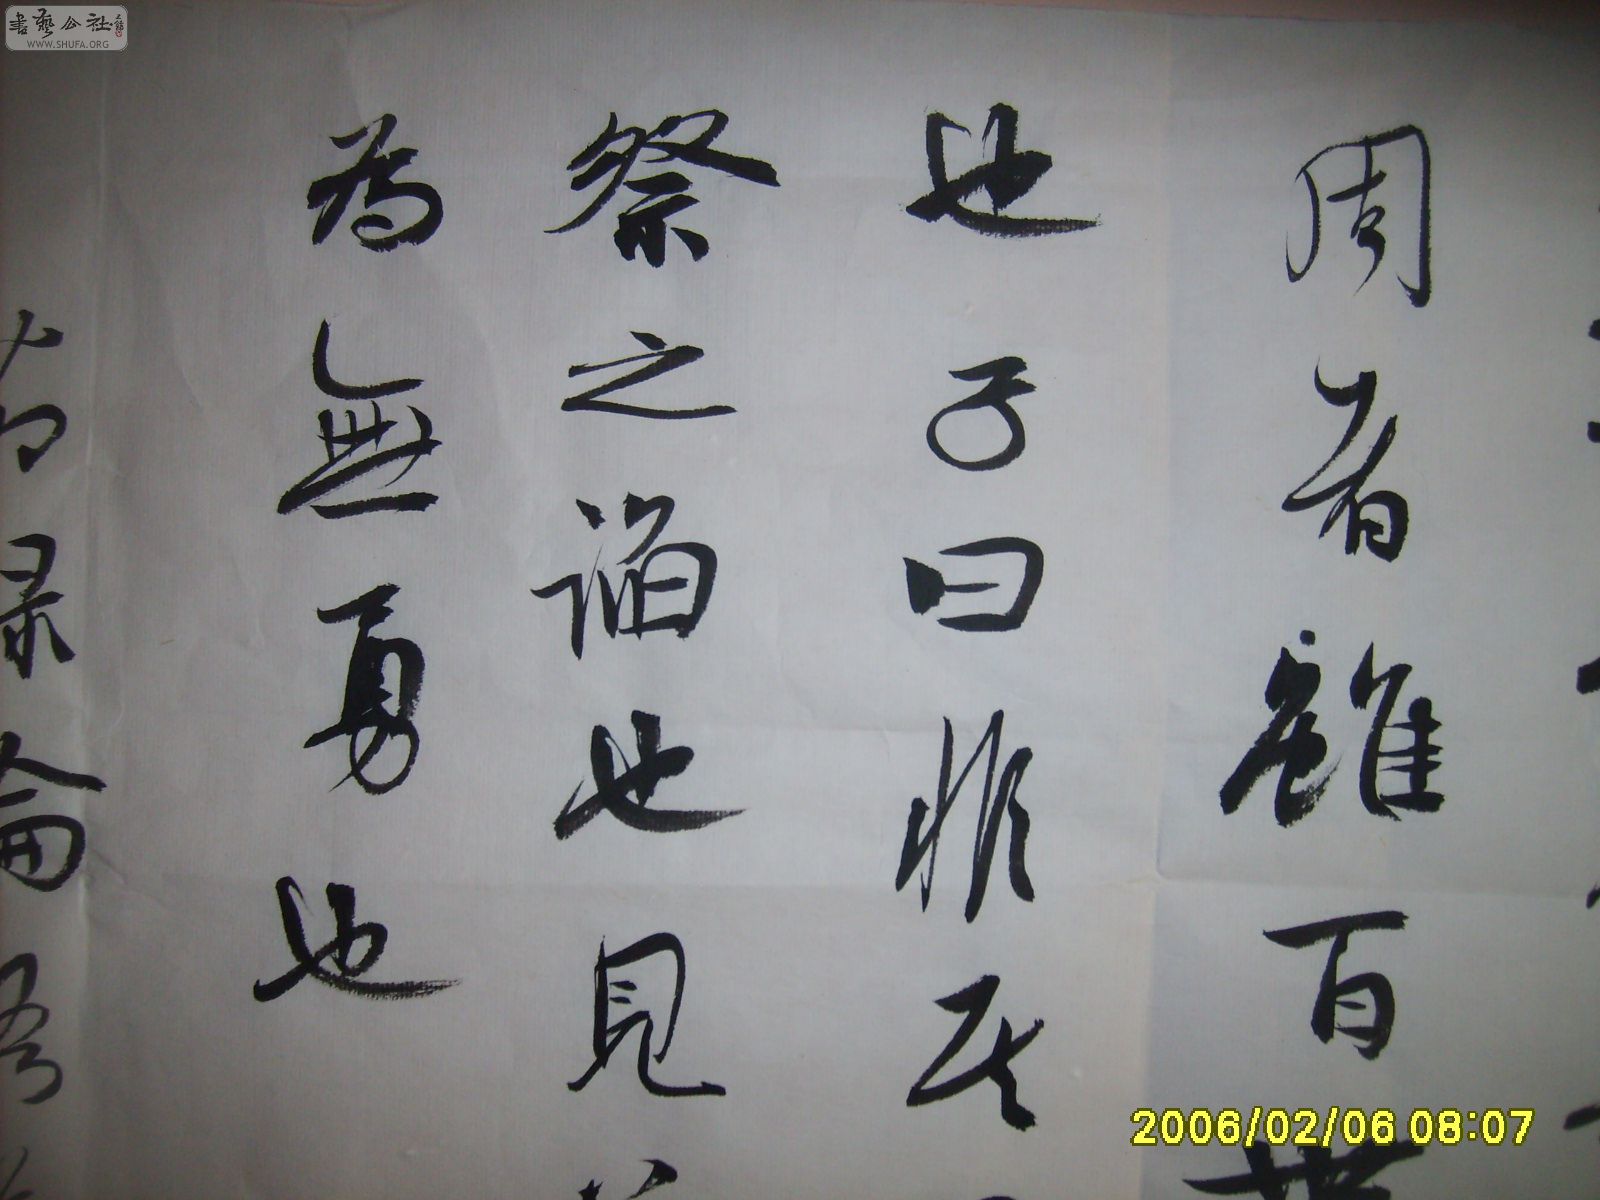 周者雖百世
也子曰非其
祭之諂也見
為無勇也
節录侖吾
書藝公社
WWW.SHUFA.ORG
2006/02/06 08:07